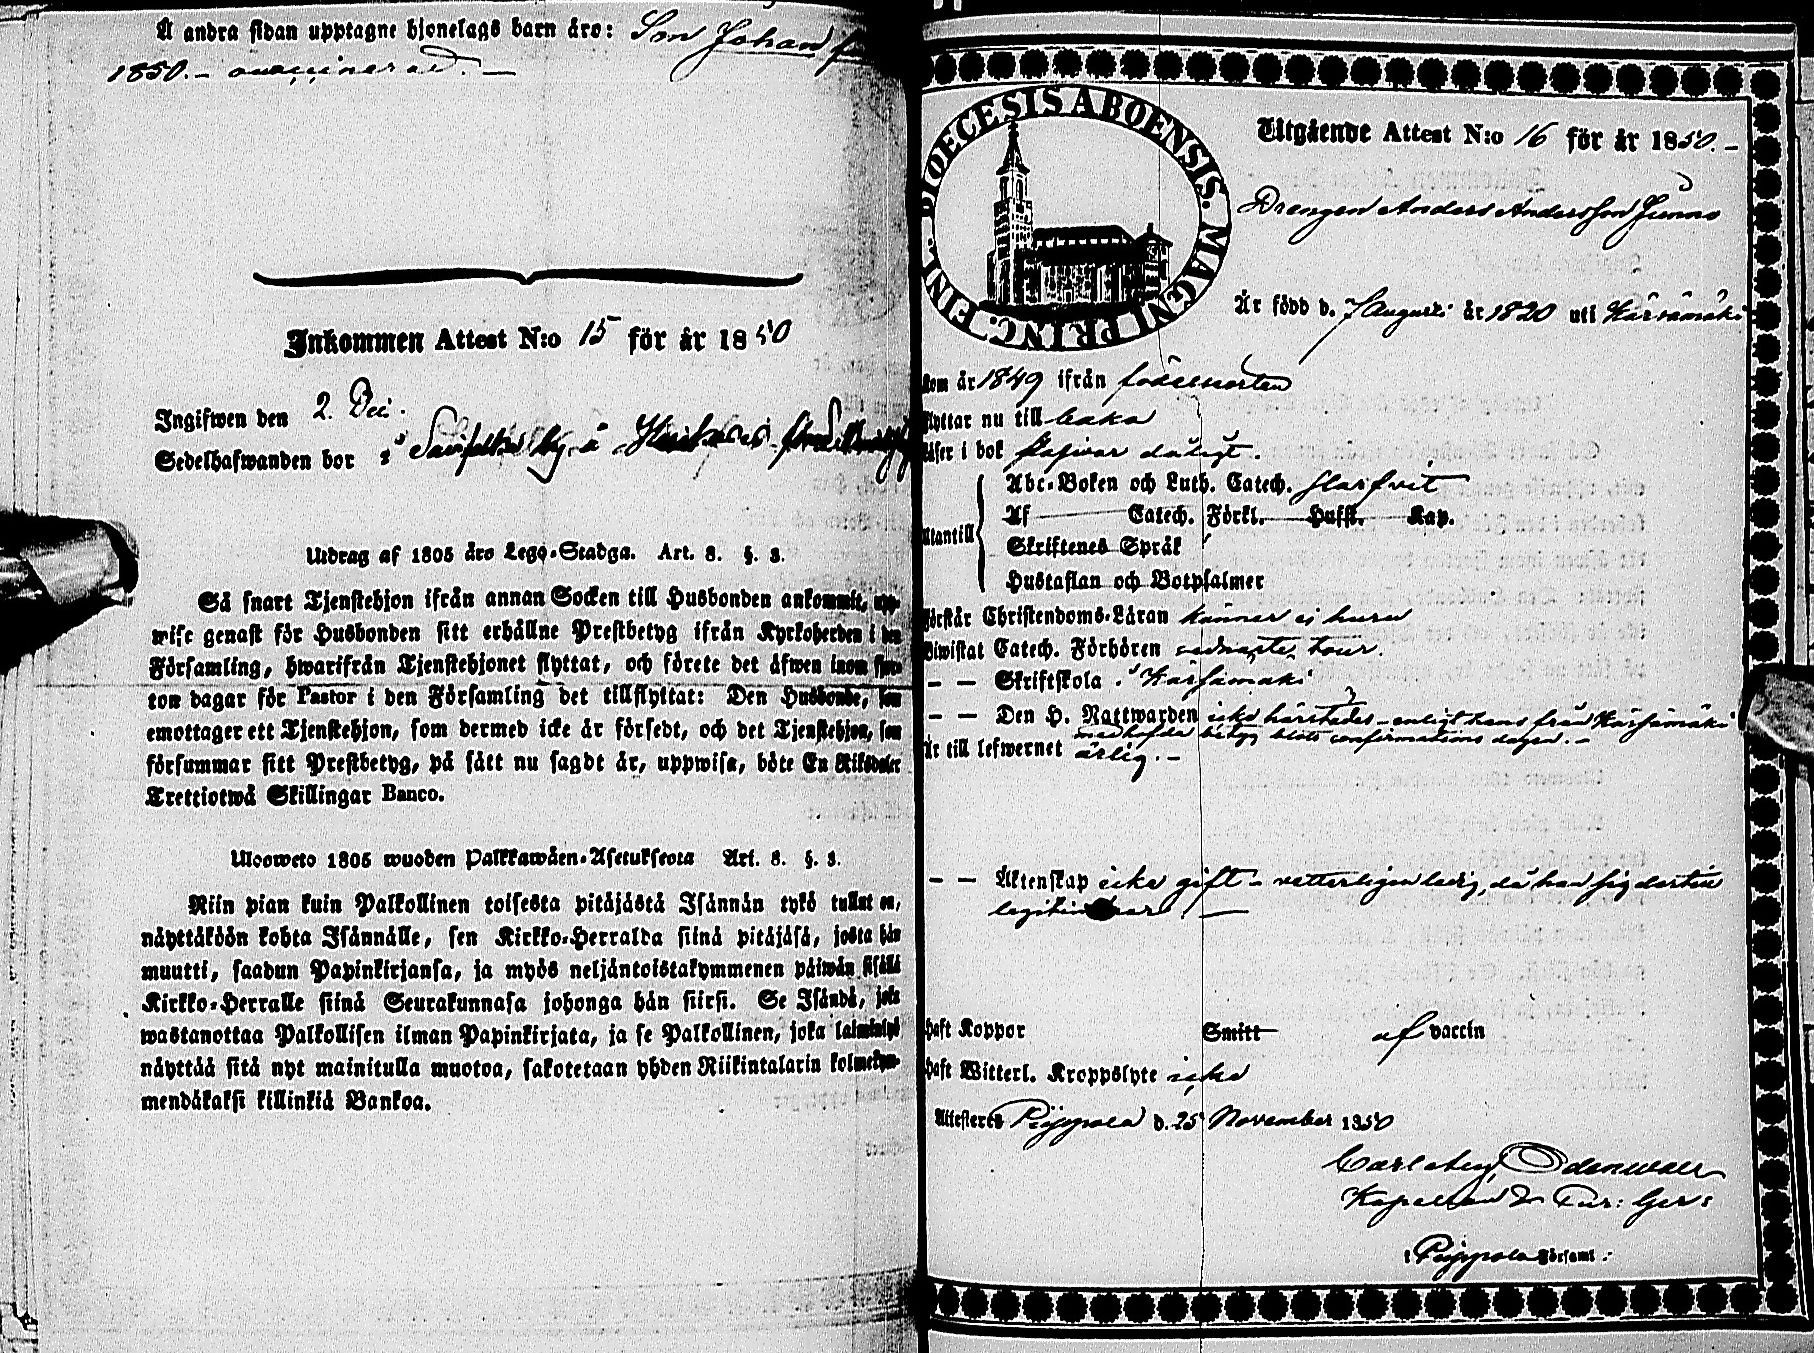 Å andra sidan upptagne hjonelags barn äro: Son Johan
1850.- ovaccinerad. -
Inkommen Attest N:o 15 för år 1850
Ingifwen den 2. Dec.
Sedelhafwanden bor i by
Utdrag af 1805 års Lego-Stadga. Art. 8. §. 8.
Så snart Tjenstehjon ifrån annan Socken till Husbonden ankommit, upp-
wise genast för Husbonden sitt erhållne Prestbetyg ifrån Kyrkoherden i den
Församling, hwarifrån Tjenstehjonet flyttat, och förete det äfwen inom fjor-
ton dagar för Pastor i den Församling det tillflyttat: Den Husbonde, som
emottager ett Tjenstehjon, som dermed icke är försedt, och det Tjenstehjon, som
försummar sitt Prestbetyg, på sätt nu sagdt är, uppwisa, böte En Riksdaler
Trettiotwå Skillingar Banco.
Ulosweto 1805 wuoden Palkkawäen-Asetuksesta Art. 8. §. 8.
Niin pian kuin Palkollinen toisesta pitäjästä Isännän tykö tullut on,
näyttäköön kohta Isännälle, sen Kirkko-Herralta siinä pitäjäsä, josta hän
muutti, saadun Papinkirjansa, ja myös neljäntoistakymmenen päiwän sisällä
Kirkko-Herralle siinä Seurakunnasa johonga hän siirsi. Se Isändä, joka
wastanottaa Palkollisen ilman Papinkirjata, ja se Palkollinen, joka laiminlyö
näyttää sitä nyt mainitulla muotoa, sakotetaan yhden Riikintalarin kolmekym-
mendäkaksi killinkiä Bankoa.
FINL. DIOECESIS ABOENSIS. MAGNI PRINC.
Utgående Attest N:o 16 för år 1850.-
Drengen Anders Andersson Junno
Är född d. 7 Augusti år 1820 uti Kärsämäki
kom år 1849 ifrån födelseorten
flyttar nu till baka
läser i bok stafwar dåligt.
Utantill
Abc-Boken och Luth. Catech. slarfvit
Af Catech. Förkl. Hufst. Kap.
Skriftenes Språk
Hustaflan och Botpsalmer
Förstår Christendoms-Läran känner ej huru
Biwistat Catech. Förhören sednaste tour.
- - Skriftskola i Kärsämäki
- - Den H. Nattwarden icke härstädes - enligt hans från Kärsämäki
medhafda betyg blott confirmations dagen. -
Är till lefwernet ärlig. -
- - Äktenskap icke gift - vitterligen ledig, då han sig dertill
legitimerar. -
Haft Koppor Smitt af vaccin
Haft Witterl. Kroppslyte icke
Attesteras Piippola d. 25 November 1850
Carl Aug Odenwall
Kapellan
i Piippola Församl: